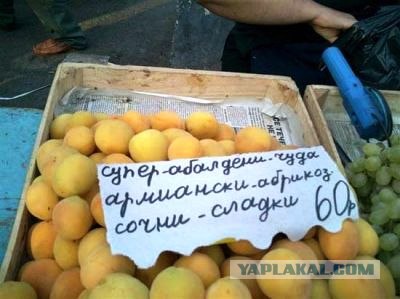 супер-абалдени-чуда
армиански-абрикоз
сочни-сладки 60р
YAPLAKAL.COM